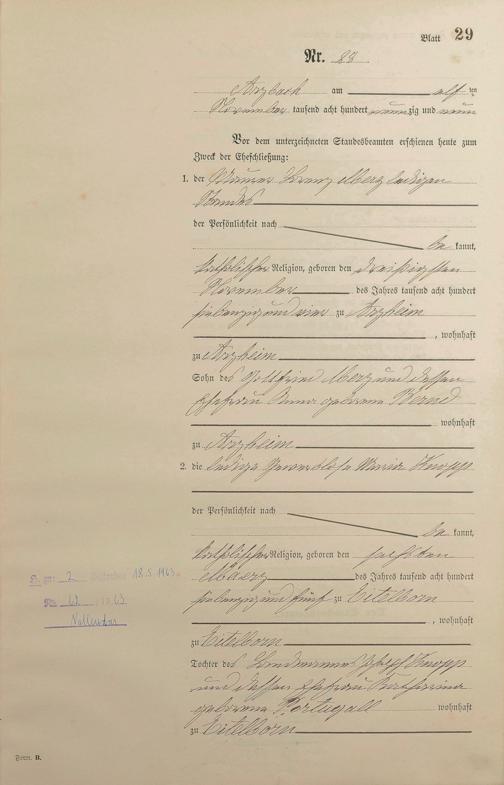 Blatt 29
Nr. 23
Arzbach am elf ten
November tausend acht hundert neunzig und neun
Vor dem unterzeichneten Standesbeamten erschienen heute zum
Zweck der Eheschließung:
1. der Maurer Merz ledigen
Standes
der Persönlichkeit nach
be kannt,
katholischer Religion, geboren den dreißigsten
November des Jahres tausend acht hundert
siebenzig und vier zu Arzheim
, wohnhaft
zu Arzheim
Sohn des Gottfried Merz und dessen
Ehefrau Anna geborene Bernd
wohnhaft
zu Arzheim
2. die ledige Gewerblose Maria Knopp
der Persönlichkeit nach
be kannt,
katholischer Religion, geboren den sechsten
Maerz des Jahres tausend acht hundert
siebenzig und fünf zu Eitelborn
, wohnhaft
zu Eitelborn
Tochter des Knopp
und dessen Ehefrau Katharina
geborene Portugall wohnhaft
zu Eitelborn
2 18.5.1963
62
Vallendar
Form. B.